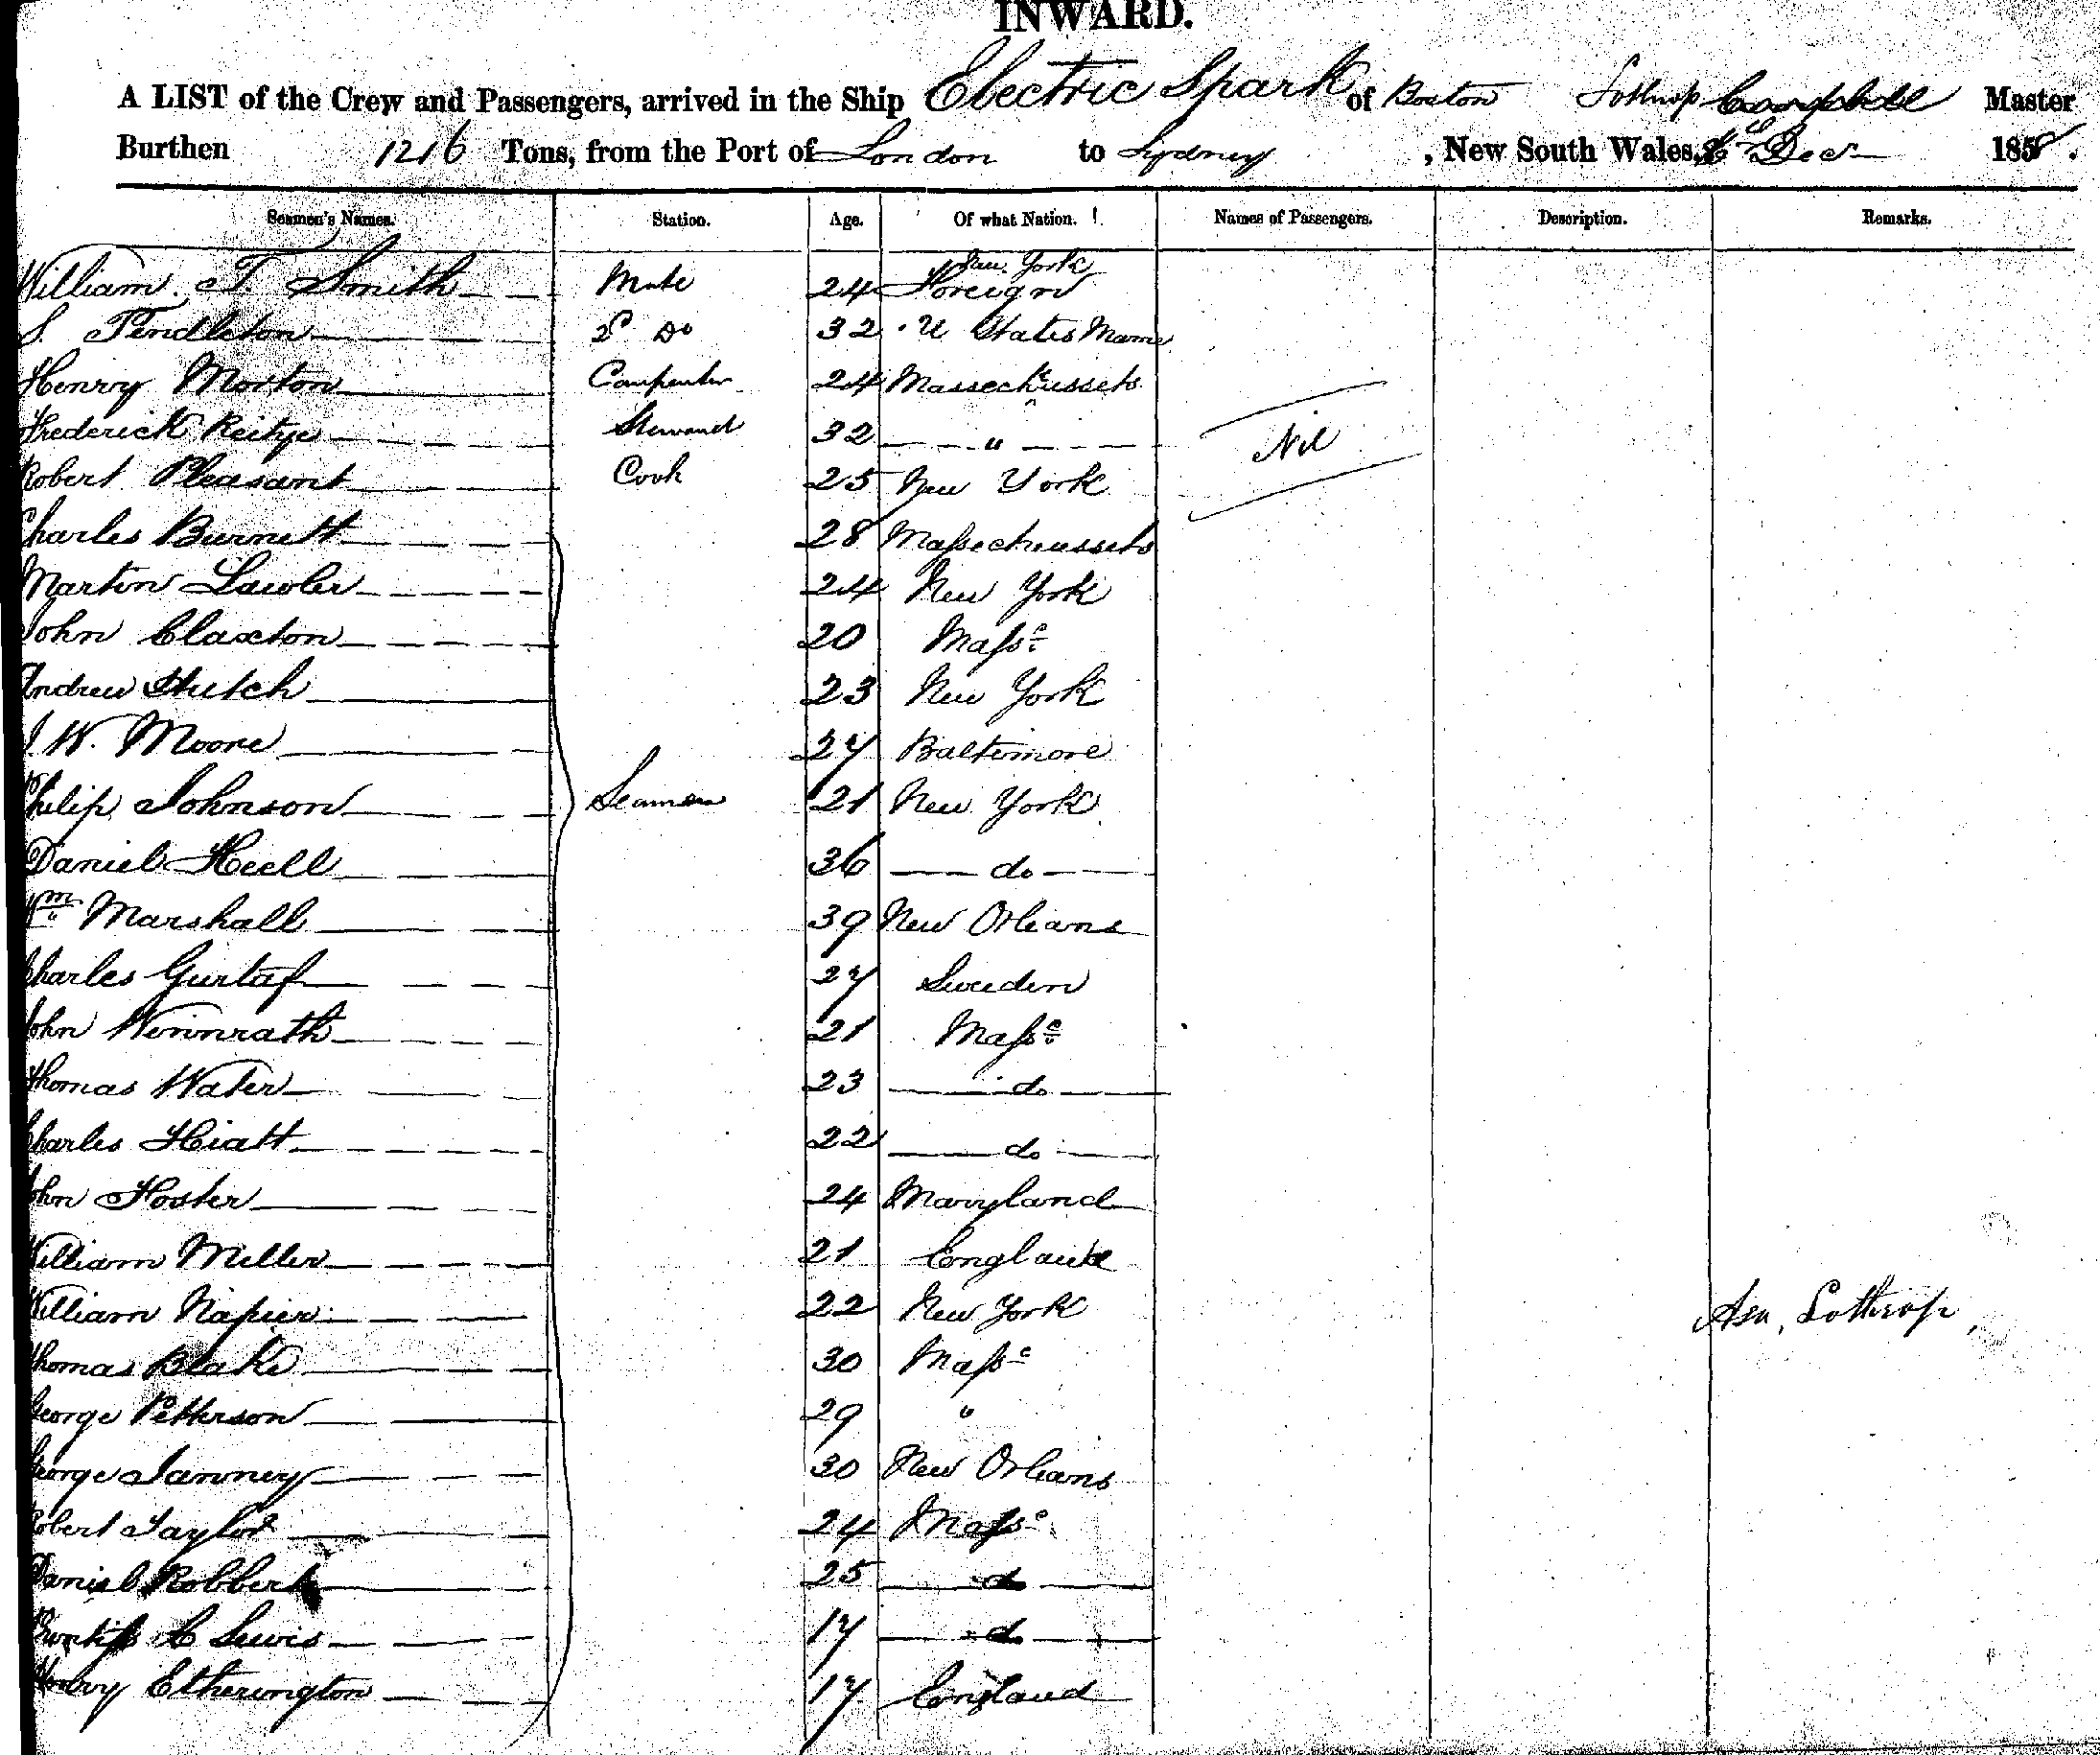 INWARD.
A LIST of the Crew and Passengers, arrived in the Ship Electric Spark of Boston Lothrop Master
Burthen 1216 Tons, from the Port of London to Sydney, New South Wales, Decr 1858.
Seamen's Names. Station. Age. Of what Nation. Names of Passengers. Description. Remarks.
New York
William T Smith Mate 24 Foreign
S. Pendleton 2d Do 32 U States Maine
Henry Morton Carpenter 24 Massechussets
Frederick Reitye Steward 32 " Nil
Robert Pleasant Cook 25 New York
Charles Burnett 28 Massecheussets
Martin Lawler 24 New York
John Claxton 20 Masse
Andrew Hutch 23 New York
J. W. Moore 27 Baltimore
Philip Johnson Seamen 21 New York
Daniel Heell 36 do
Wm Marshall 39 New Orleans
Charles Gustaf 27 Sweden
John Weinrath 21 Masse
Thomas Water 23 do
Charles Hiatt 22 do
John Foster 24 Maryland
William Miller 21 England
William Napier 22 New York Asa, Lothrop,
Thomas Blake 30 Masse
George Petterson 29 "
George Janney 30 New Orleans
Robert Taylor 24 Masse
Daniel Robbert 25 do
C Lewis 17 do
Henry Etherington 17 England